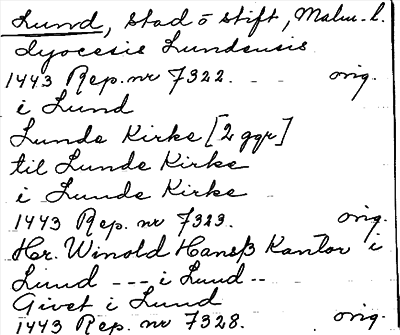 Lund, stad o stift, Malm. l.
dyocesis Lundensis
1443 Rep. nr 7322. - - orig.
i Lund
Lunde Kirke [2 ggr]
til Lunde Kirke
i Lunde Kirke
1443 Rep. nr 7323. orig.
Hr. Winold Hanss Kantor i
Lund --- i Lund --
Givet i Lund
1443 Rep. nr 7328. orig.